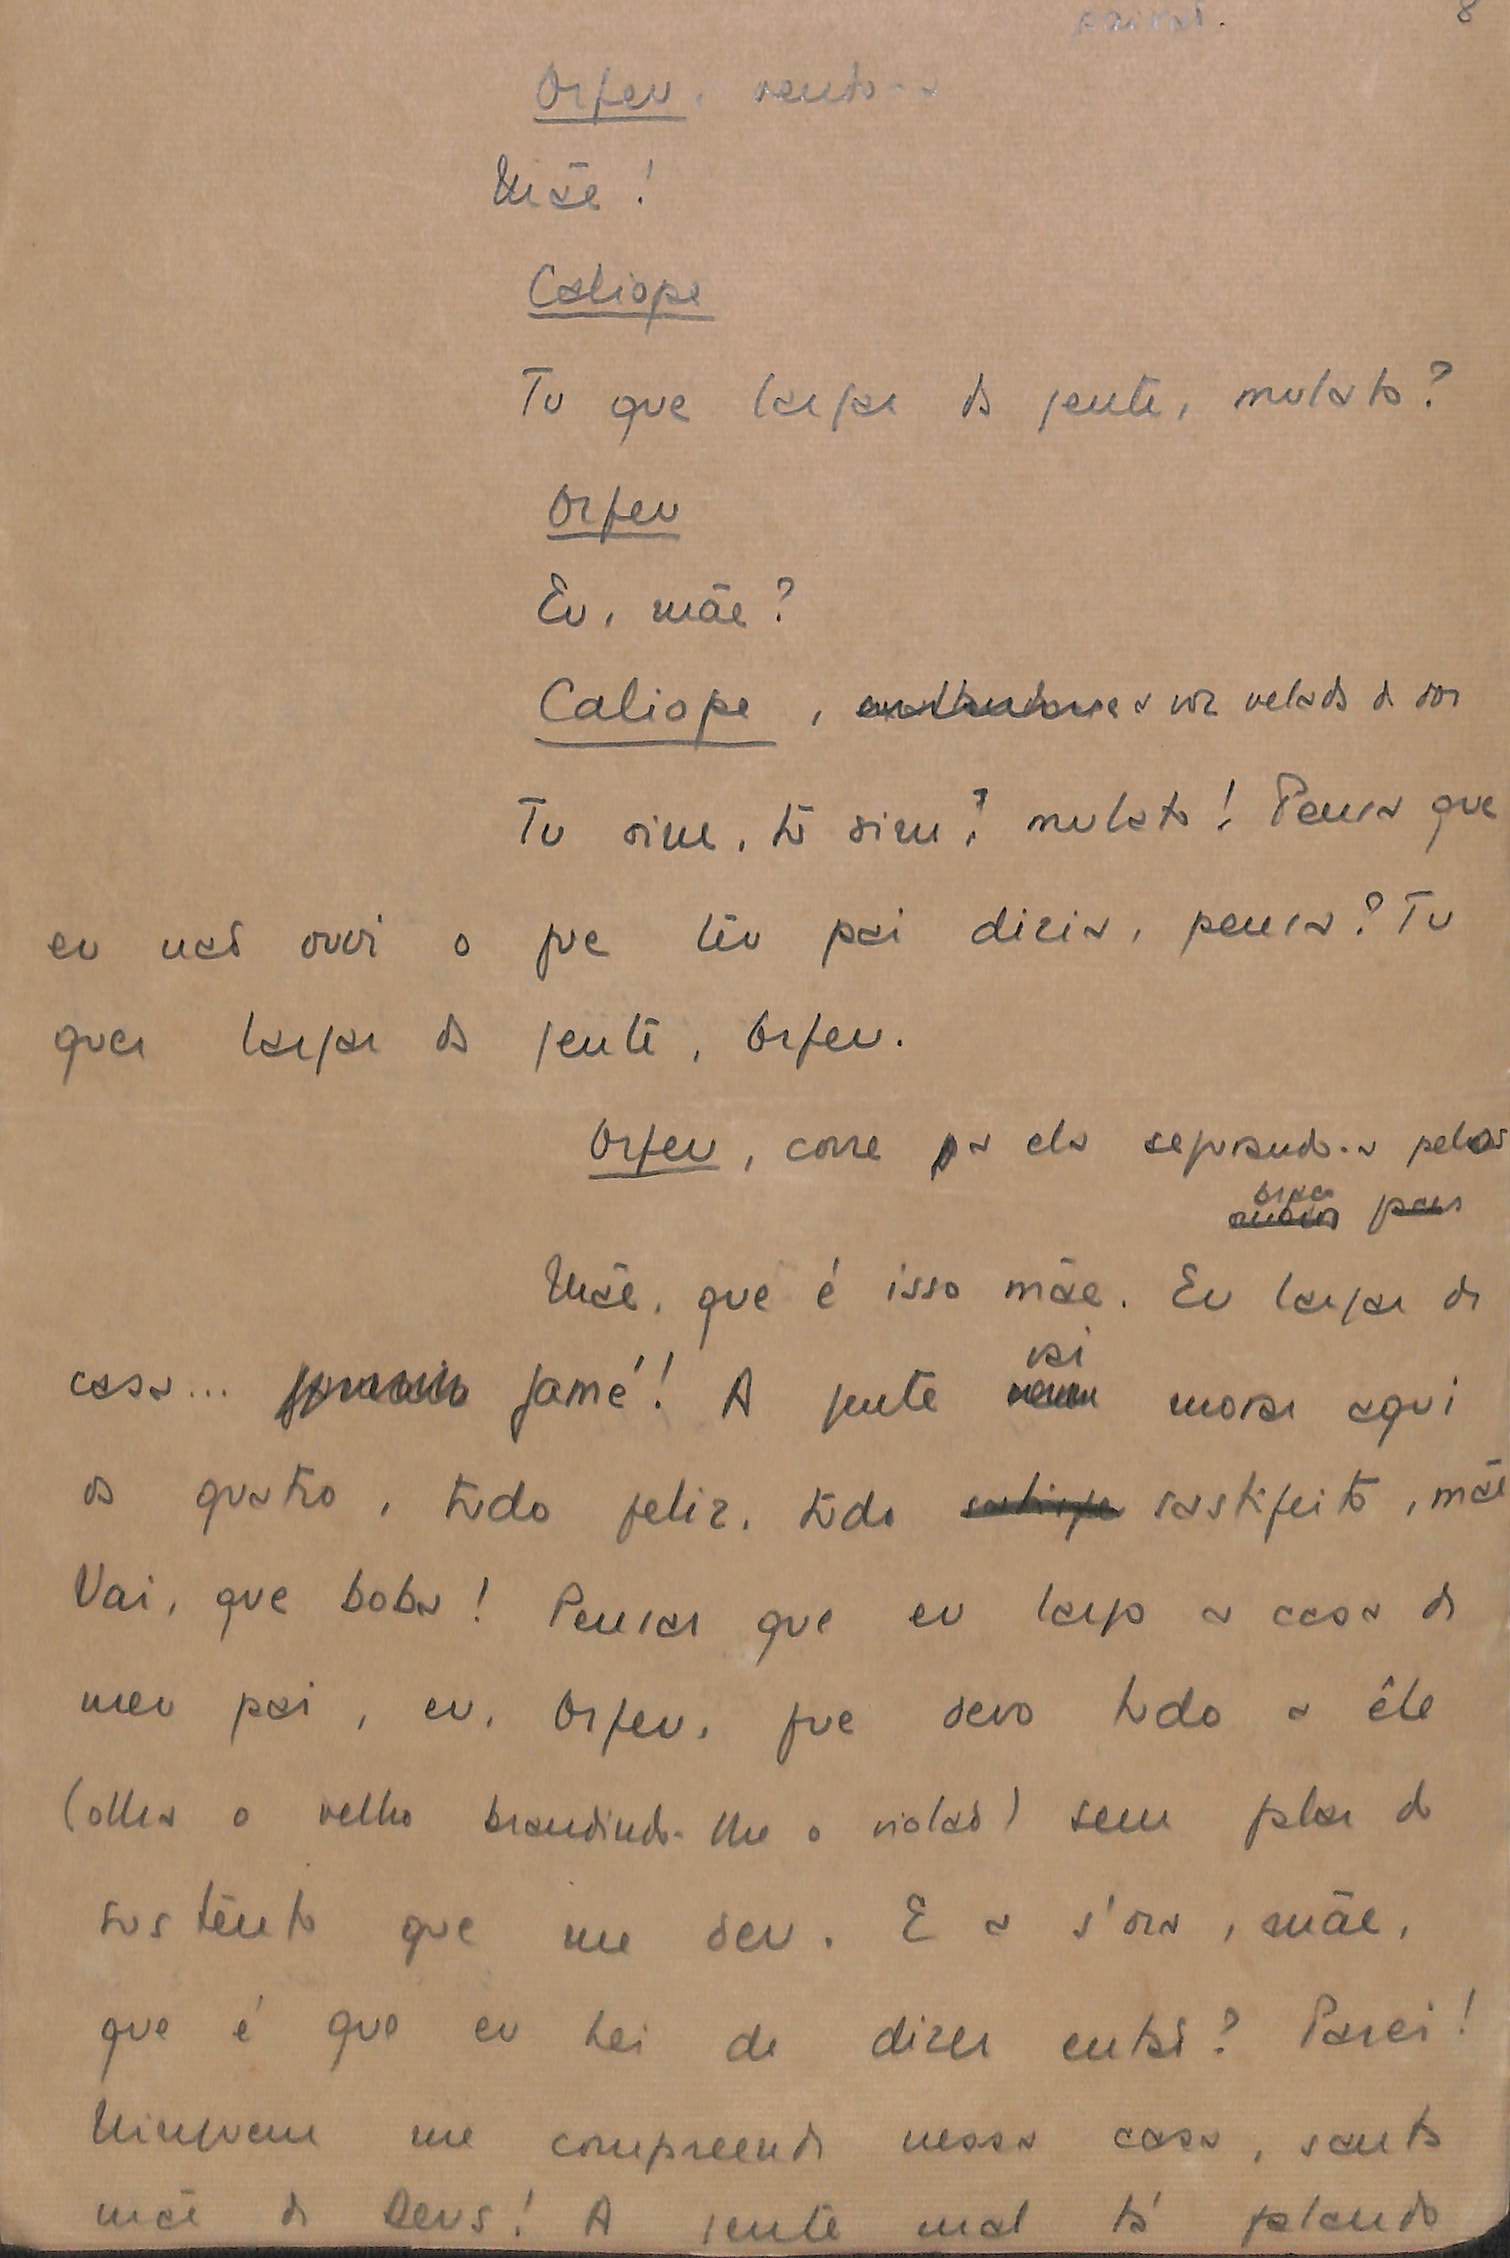 paixão. 8
Orfeu, vendo-a
Mãe!
Caliope
Tu que largar da gente, mulato?
Orfeu
Eu, mãe?
Caliope, a voz velada de dor
Tu sim, tu sim, mulato! Pensa que
eu não ouvi o que teu pai dizia, pensa? Tu
quer largar da gente, Orfeu.
Orfeu, corre pa ela segurando-a pelos
braços
Mãe, que é isso mãe. Eu largar de
casa... jamé! A gente vai morar aqui
os quatro, tudo feliz, tudo sastifeito, mãe
Vai, que boba! Pensar que eu largo a casa de
meu pai, eu, Orfeu, que devo tudo a êle
(olha o velho brandindo-lhe o violão) sem falar do
sustento que me deu. E a s'ora, mãe,
que é que eu hei de dizer então? Parei!
Ninguem me compreende nessa casa, santa
mãe de Deus! A gente mal tá falando